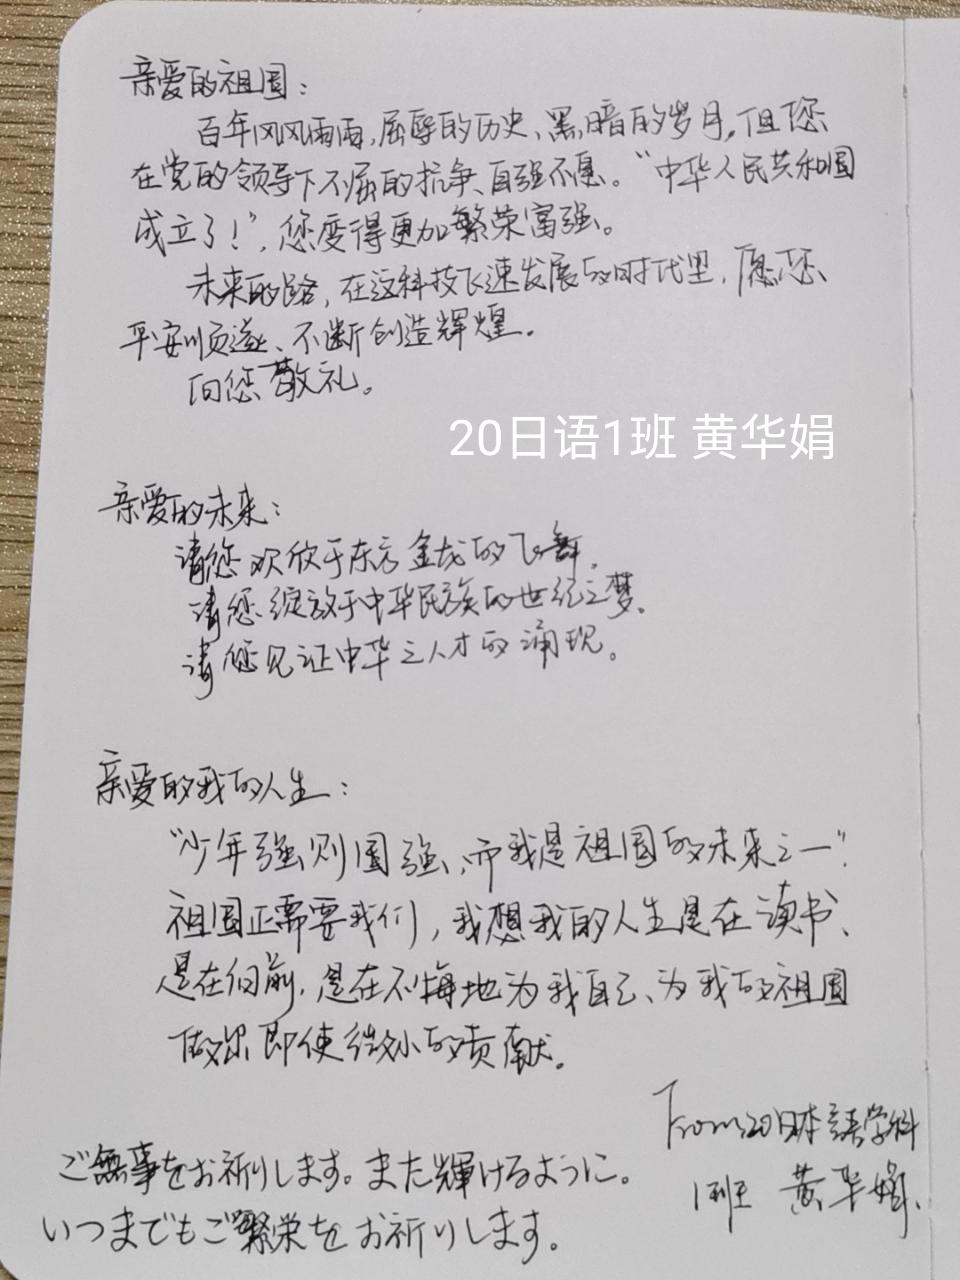 亲爱的祖国：
百年风风雨雨，屈辱的历史、黑暗的岁月，但您
在党的领导下不屈的抗争、自强不息。“中华人民共和国
成立了！”，您变得更加繁荣富强。
未来的路，在这科技飞速发展的时代里，愿您、
平安顺遂、不断创造辉煌。
向您敬礼。
20日语1班 黄华娟
亲爱的未来：
请您欢欣于东方金龙的飞舞，
请您绽放于中华民族的世纪之梦，
请您见证中华之人才的涌现。
亲爱的我的人生：
“少年强则国强，而我是祖国的未来之一”．
祖国正需要我们，我想我的人生是在读书、
是在向前，是在不悔地为我自己、为我的祖国
做出即使微小的贡献。
From 20日本語学科
1班 黄华娟．
ご無事をお祈りします。また輝けるように。
いつまでもご繁栄をお祈りします。